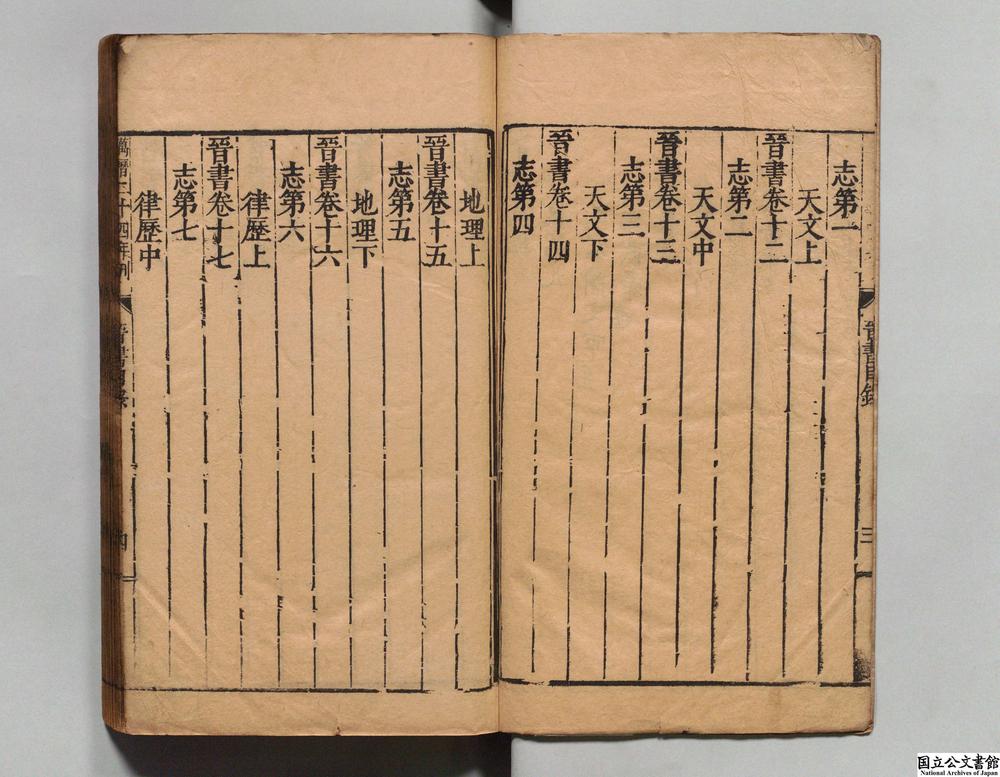 志第一
天文上
晉書卷十二
志第二
天文中
晉書卷十三
志第三
天文下
晉書卷十四
志第四
晉書目錄
三
地理上
晉書卷十五
志第五
地理下
晉書卷十六
志第六
律歷上
晉書卷十七
志第七
律歷中
晉書目錄
四
国立公文書館
National Archives of Japan